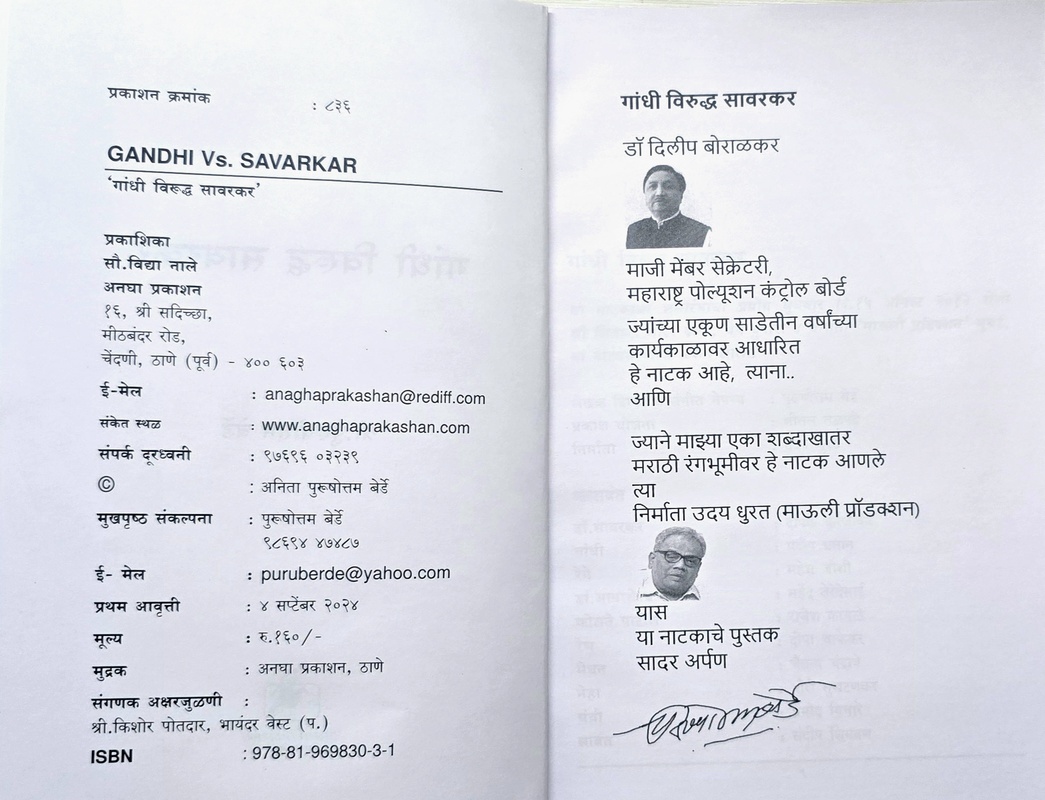 प्रकाशन क्रमांक : ८३६
GANDHI Vs. SAVARKAR
'गांधी विरूद्ध सावरकर'
प्रकाशिका
सौ.विद्या नाले
अनघा प्रकाशन
१६, श्री सदिच्छा,
मीठबंदर रोड,
चेंदणी, ठाणे (पूर्व) - ४०० ६०३
ई-मेल : anaghaprakashan@rediff.com
संकेत स्थळ : www.anaghaprakashan.com
संपर्क दूरध्वनी : ९७६९६ ०३२३९
© : अनिता पुरूषोत्तम बेर्डे
मुखपृष्ठ संकल्पना : पुरूषोत्तम बेर्डे
९८६९४ ४७४८७
ई- मेल : puruberde@yahoo.com
प्रथम आवृत्ती : ४ सप्टेंबर २०२४
मूल्य : रु.१६०/-
मुद्रक : अनघा प्रकाशन, ठाणे
संगणक अक्षरजुळणी :
श्री.किशोर पोतदार, भायंदर वेस्ट (प.)
ISBN : 978-81-969830-3-1
गांधी विरुद्ध सावरकर
डॉ दिलीप बोराळकर
माजी मेंबर सेक्रेटरी,
महाराष्ट्र पोल्यूशन कंट्रोल बोर्ड
ज्यांच्या एकूण साडेतीन वर्षांच्या
कार्यकाळावर आधारित
हे नाटक आहे, त्याना..
आणि
ज्याने माझ्या एका शब्दाखातर
मराठी रंगभूमीवर हे नाटक आणले
त्या
निर्माता उदय धुरत (माऊली प्रॉडक्शन)
यास
या नाटकाचे पुस्तक
सादर अर्पण